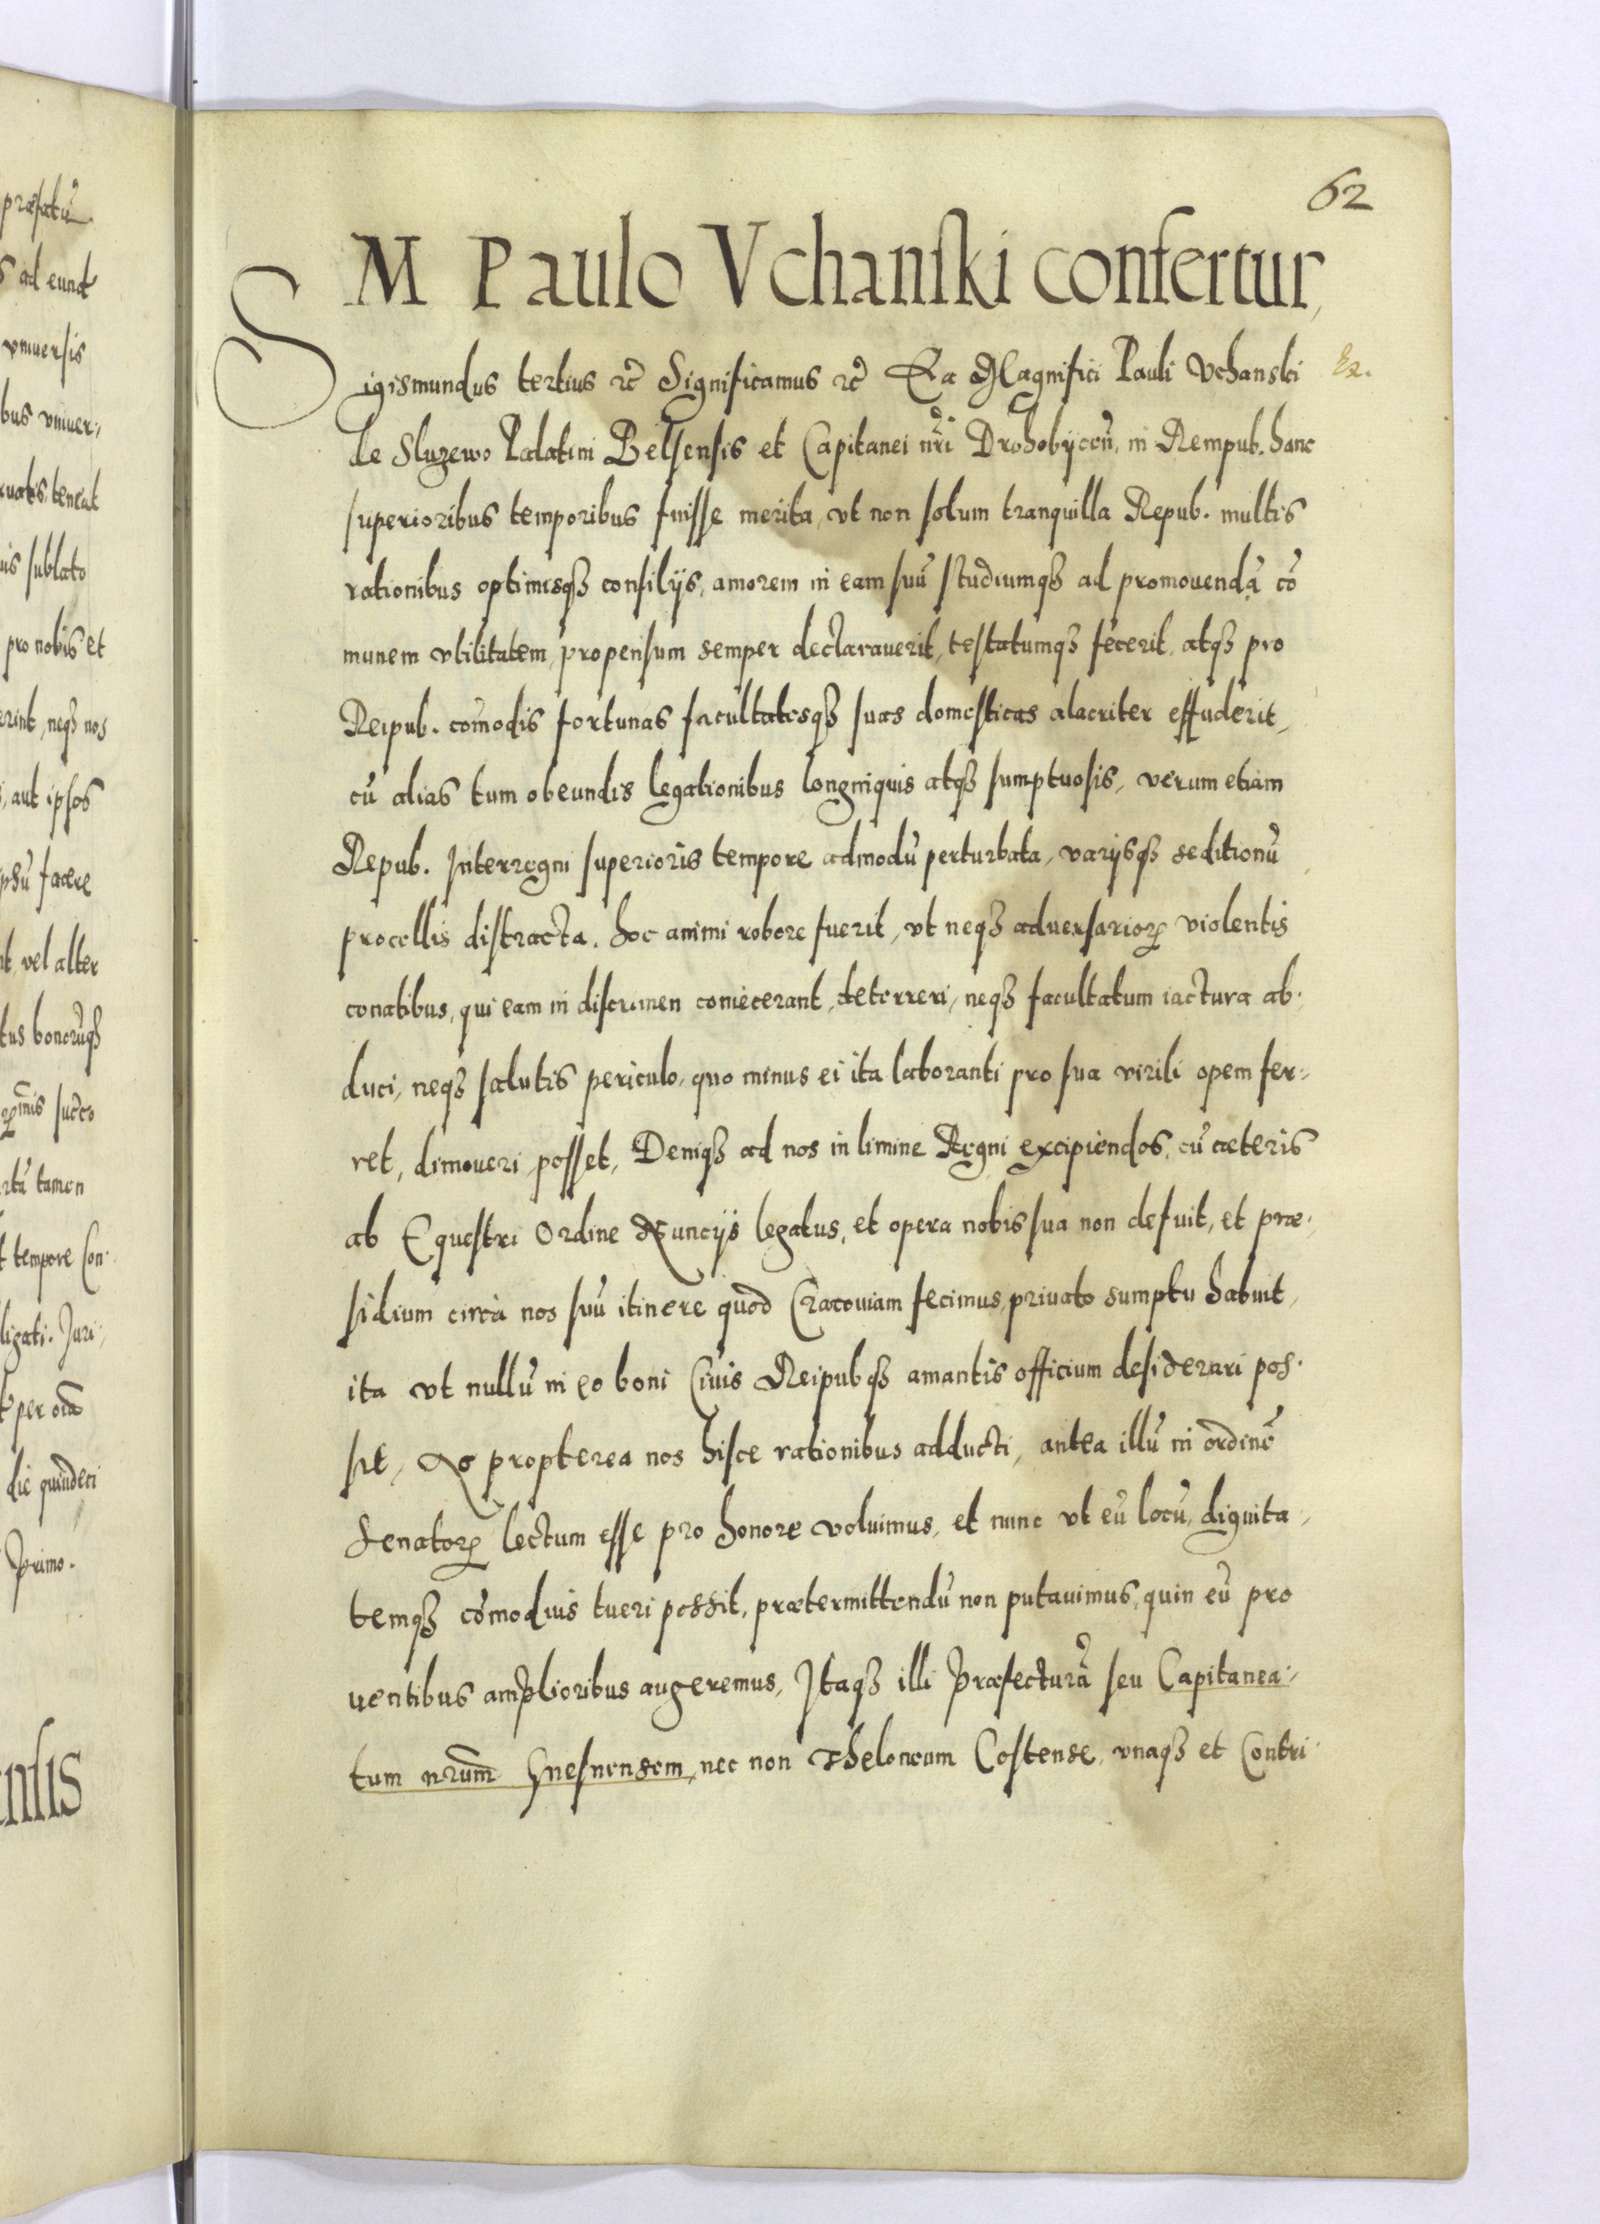 præfatũ
s ad eundẽ
vniuersis
bus vniuer,
ruatis teneat
uis sublato
pro nobis et
erint, neqȝ nos
, aut ipsos
psũ facere
nt, vel alter
tus bonorũqȝ
succo
tamen
t tempore Con-
ligati. Juri-
per
die quindeci
Primo.
ensis
62
M Paulo Vchanski confertur,
Sigismundus tertius rc̃ Significamus rc̃ Ea Magnifici Pauli Vchanski
Ex.
de Sluzewo Palatini Belsensis et Capitanei nr̃i Drohobyceñ, in Rempub. hanc
superioribus temporibus fuisse merita, vt non solum tranquilla Repub. multis
rationibus optimisqȝ consilijs, amorem in eam suũ studiumqȝ ad promouendã cõ
munem vtilitatem, propensum semper declarauerit, testatumqȝ fecerit, atqȝ pro
Reipub. cõmodis fortunas facultatesqȝ suas domesticas alacriter effuderit,
cũ alias tum obeundis legationibus longinquis atqȝ sumptuosis, verum etiam
Repub. Interregni superioris tempore admodũ perturbata, varijsqȝ seditionũ
procellis distracta. hoc animi robore fuerit, vt neqȝ aduersarioꝝ violentis
conatibus, qui eam in discrimen coniecerant, deterreri, neqȝ facultatum iactura ab-
duci, neqȝ salutis periculo, quo minus ei ita laboranti pro sua virili opem fer-
ret, dimoueri posset, Deniqȝ ad nos in limine Regni excipiendos, cũ cæteris
ab Equestri Ordine Nuncijs legatus, et opera nobis sua non defuit, et præ-
sidium circa nos suũ itinere quod Cracouiam fecimus, priuato sumptu habuit,
ita vt nullũ in eo boni Ciuis Reipubqȝ amantis officium desiderari pos-
sit, Ac propterea nos hisce rationibus adducti, antea illũ in ordinẽ
Senatoꝝ lectum esse pro honore voluimus, et nunc vt eũ locũ, dignita-
temqȝ cõmodius tueri possit, prætermittendũ non putauimus, quin eũ pro
uentibus amplioribus augeremus, Itaqȝ illi Præfecturã seu Capitanea-
tum nr̃um Gnesnensem, nec non Theloneum Costense, vnaqȝ et Contri-